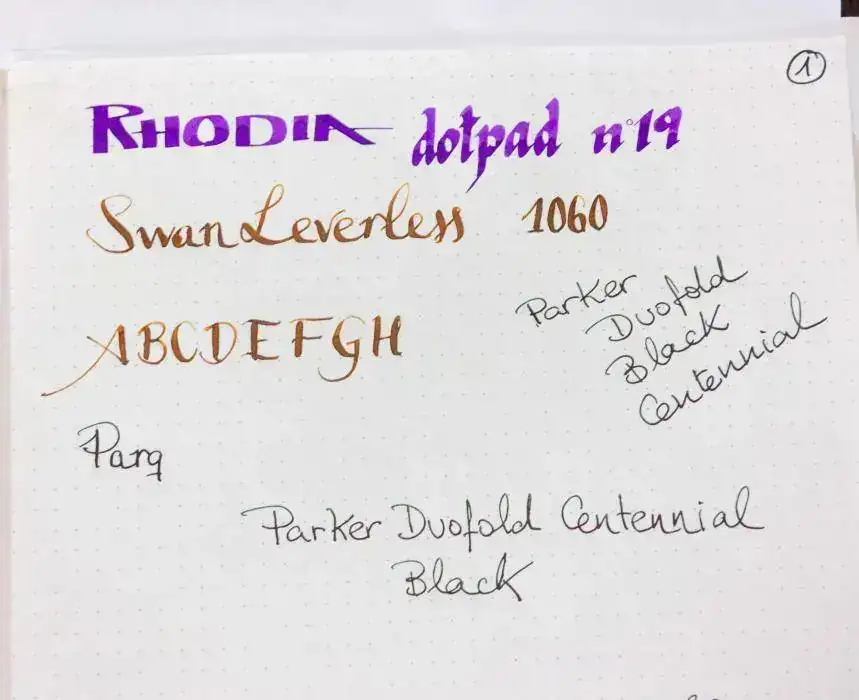 1
RHODIA dotpad n°19
Swan Leverless 1060
ABCDEFGH
Parker
Duofold
Black
Centennial
Parq
Parker Duofold Centennial
Black